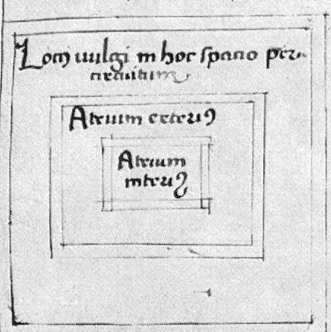 Locꝰ vulgi in hoc spacio per
circuitum
Atrium exteriꝰ
Atrium
interiꝰ